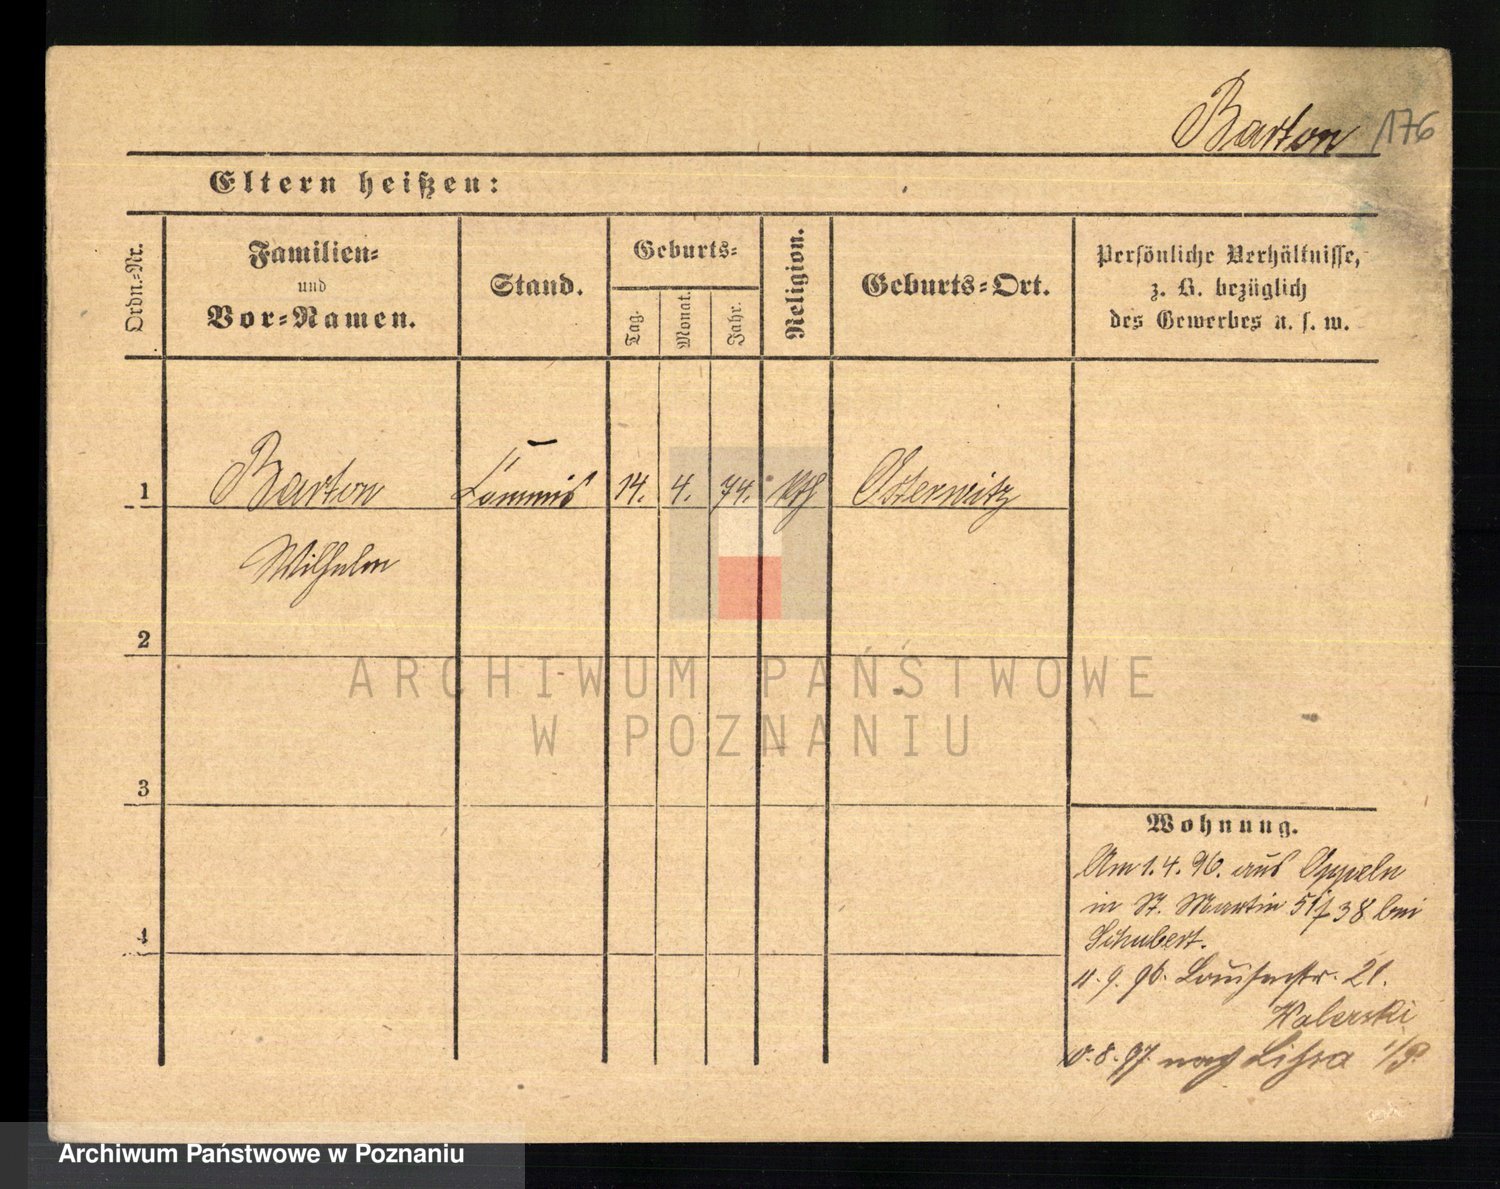 Barton 176
Eltern heißen:
Ordn.-Nr.
Familien-
und
Vor-Namen.
Stand.
Geburts-
Tag.
Monat.
Jahr.
Religion.
Geburts-Ort.
Persönliche Verhältnisse,
z. B. bezüglich
des Gewerbes u. s. w.
1 Barton Commis 14. 4. 74. kth Osterwitz
Wilhelm
2
3
4
ARCHIWUM PAŃSTWOWE
W POZNANIU
Wohnung.
Am 1.4.96. aus Oppeln
in St. Martin 38 bei
Schubert.
9. 96. Louisenstr. 21.
Walerski
8. 97 nach Lissa i/P.
Archiwum Państwowe w Poznaniu